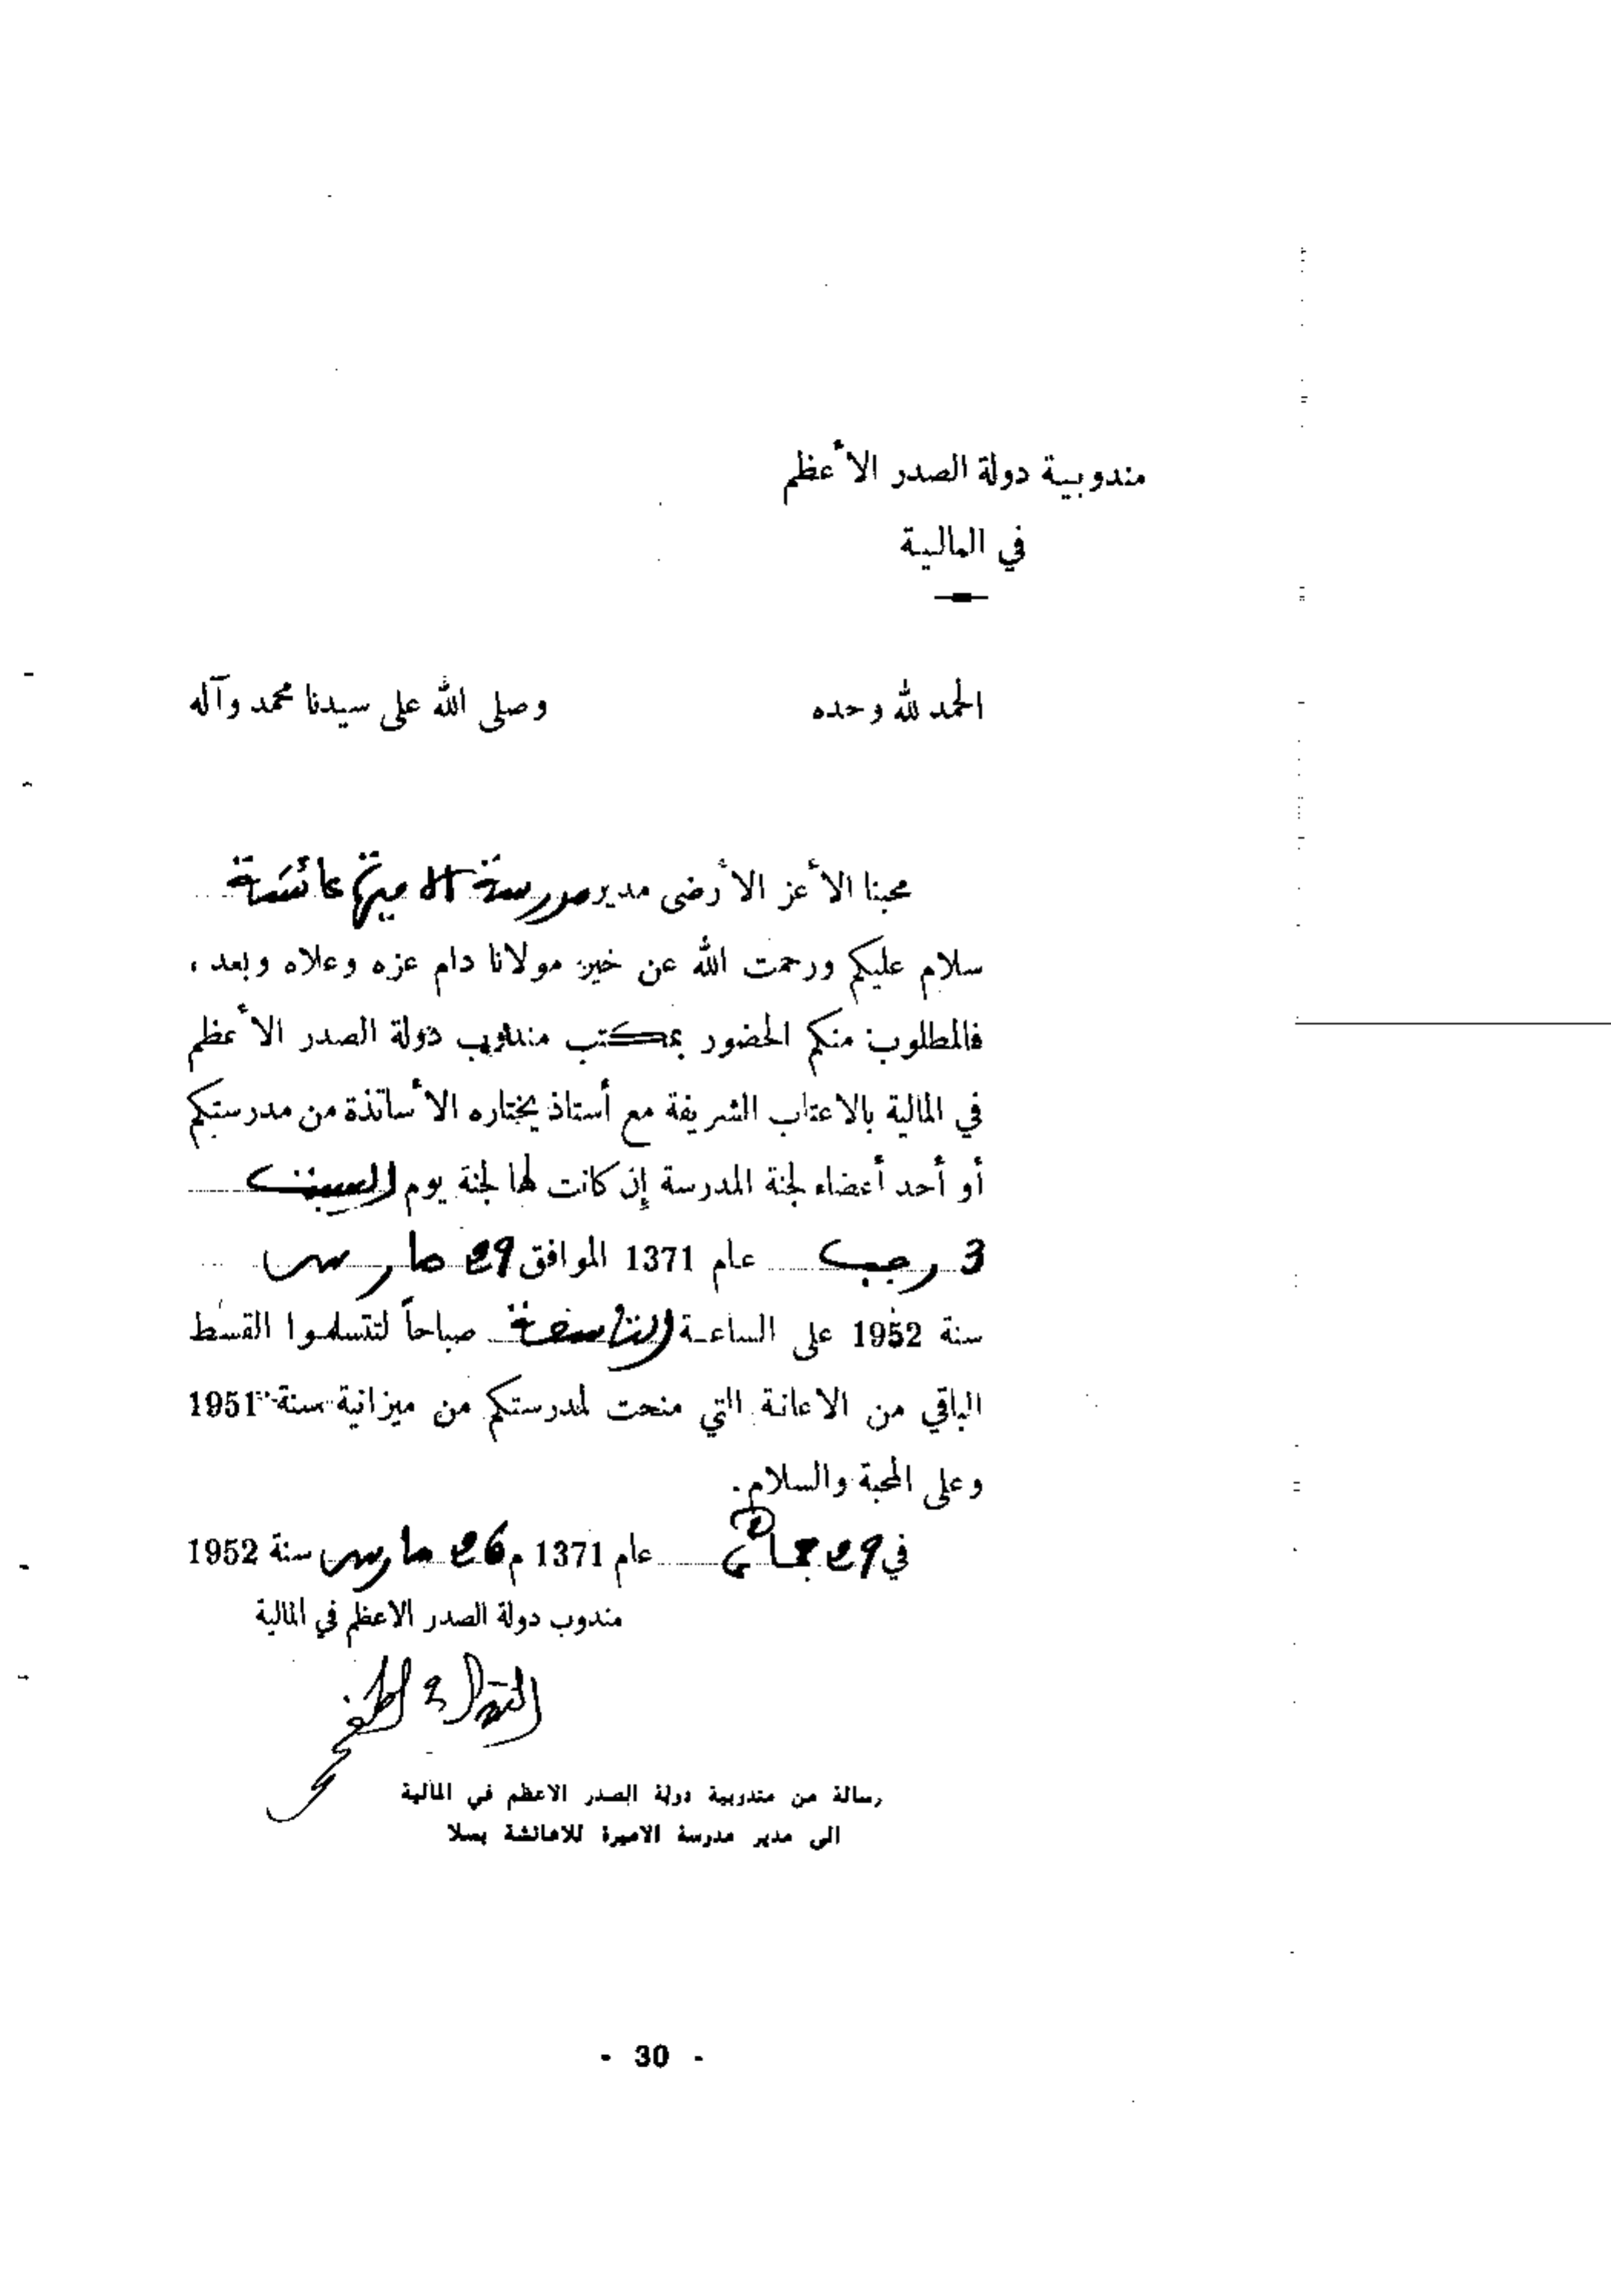 مندوبية دولة الصدر الأعظم
في المالية
الحمد لله وحده وصلى الله على سيدنا محمد وآله
محبنا الأعز الأرضى مدير مدرسة الاميرة عائشة
سلام عليكم ورحمت الله عن خير مولانا دام عزه وعلاه وبعد ،
فالمطلوب منكم الحضور بمكتب مندوب دولة الصدر الأعظم
في المالية بالاعتاب الشريفة مع أستاذ يختاره الأساتذة من مدرستكم
أو أحد أعضاء لجنة المدرسة إن كانت لها لجنة يوم السبت
3 رجب عام 1371 الموافق 29 مارس
سنة 1952 على الساعة التاسعة صباحاً لتتسلموا القسط
الباقي من الاعانة التي منحت لمدرستكم من ميزانية سنة 1951
وعلى المحبة والسلام.
في 29 عام 1371 م 26 مارس سنة 1952
مندوب دولة الصدر الاعظم في المالية
رسالة من مندوبية دولة الصدر الاعظم في المالية
الى مدير مدرسة الاميرة للاعائشة بسلا
- 30 -